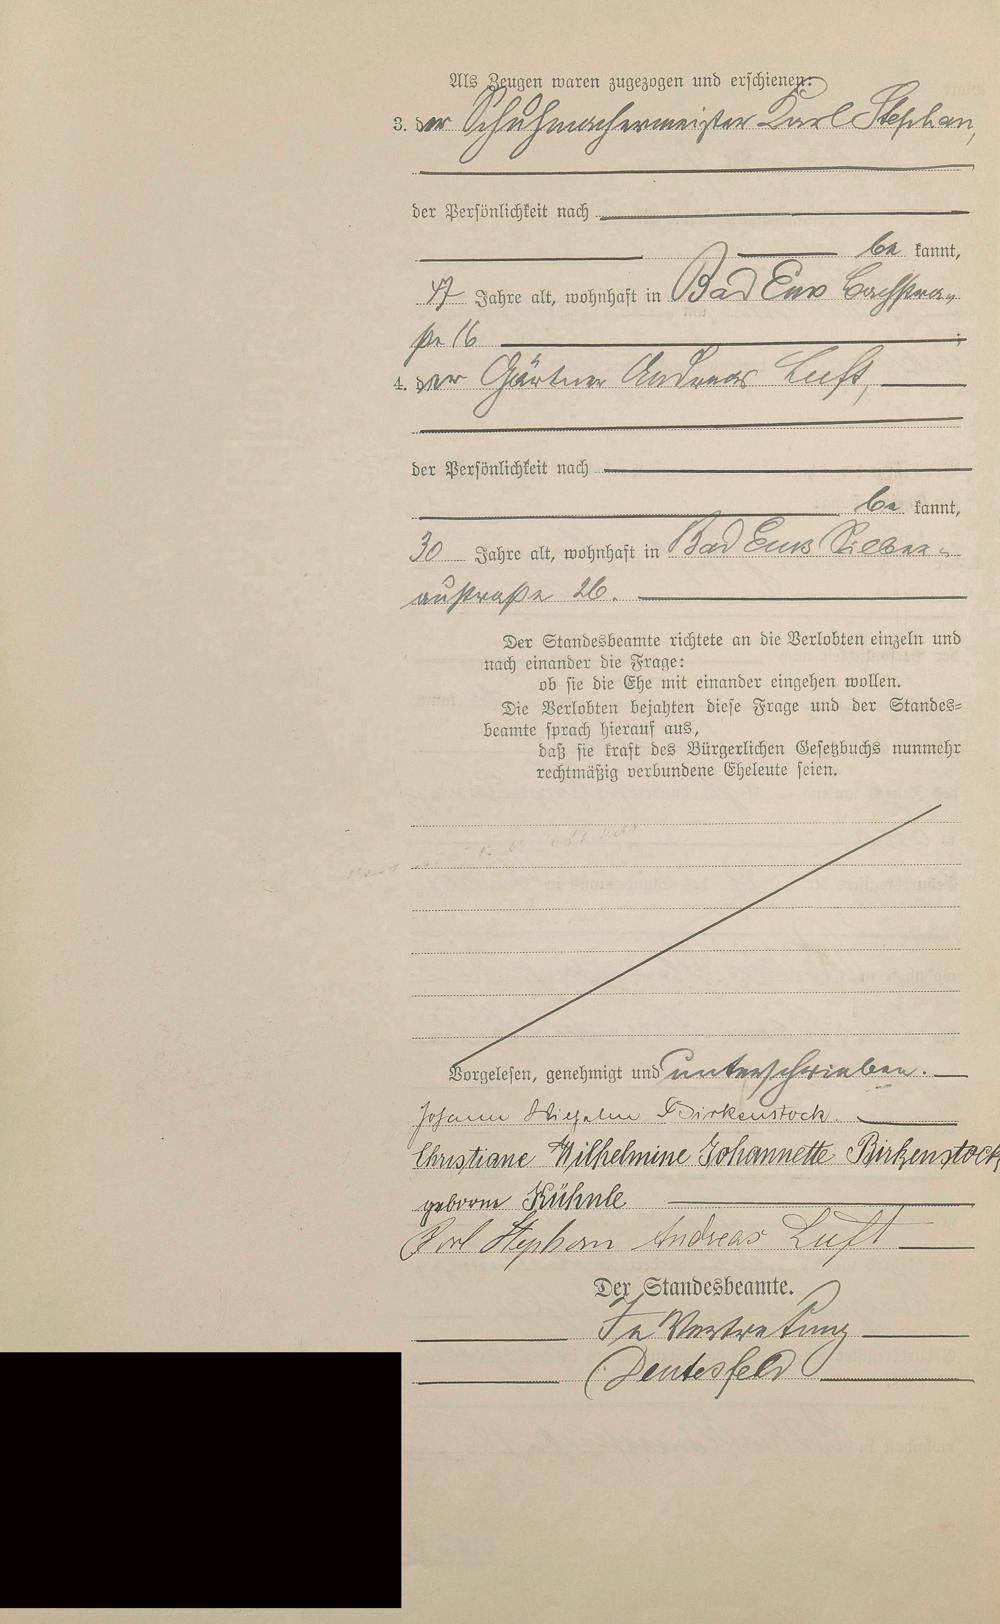 Als Zeugen waren zugezogen und erschienen:
3. der Schuhmachermeister Karl Stephan,
der Persönlichkeit nach
be kannt,
47 Jahre alt, wohnhaft in Bad Ems Bachstra-
ße 16 ;
4. der Gärtner Andreas Luft,
der Persönlichkeit nach
be kannt,
30 Jahre alt, wohnhaft in Bad Ems Silber-
austraße 26.
Der Standesbeamte richtete an die Verlobten einzeln und
nach einander die Frage:
ob sie die Ehe mit einander eingehen wollen.
Die Verlobten bejahten diese Frage und der Standes=
beamte sprach hierauf aus,
daß sie kraft des Bürgerlichen Gesetzbuchs nunmehr
rechtmäßig verbundene Eheleute seien.
Vorgelesen, genehmigt und unterschrieben.
Johann Wilhelm Birkenstock.
Christiane Wilhelmine Johannette Birkenstock
geborne Kühnle
Karl Stephan Andreas Luft
Der Standesbeamte.
In Vertretung
Deutesfeld